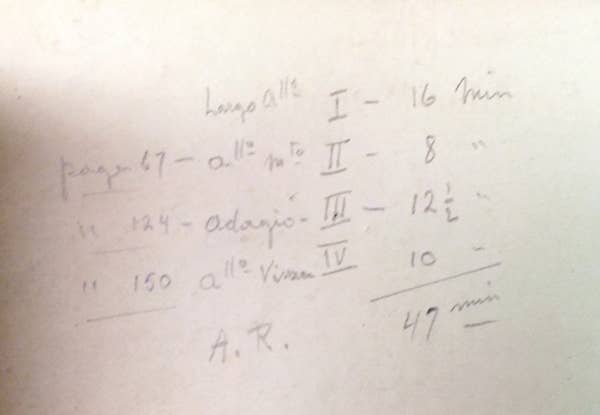 Largo All° I - 16 Min
page 67 - all° m^to II - 8 "
" 124 - adagio - III - 12 ½ "
" 150 all° Vivace IV 10 "
47 min
A. R.